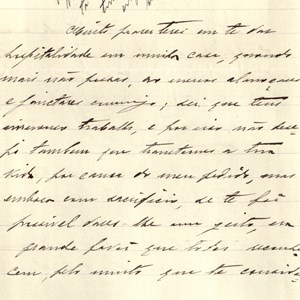 Muito prazer terei em te dar
hospitalidade em minha casa, quando
mais não possas, ao menos almoçares
e jantares commigo; sei que tens
immenso trabalho, e por isso não dese
jo tambem que transtornes a tua
vida, por causa do meu pedido, mas
embora com sacrificio, se te fôr
possivel dares-lhe um geito, era
grande favôr que todos
pelo muito que te